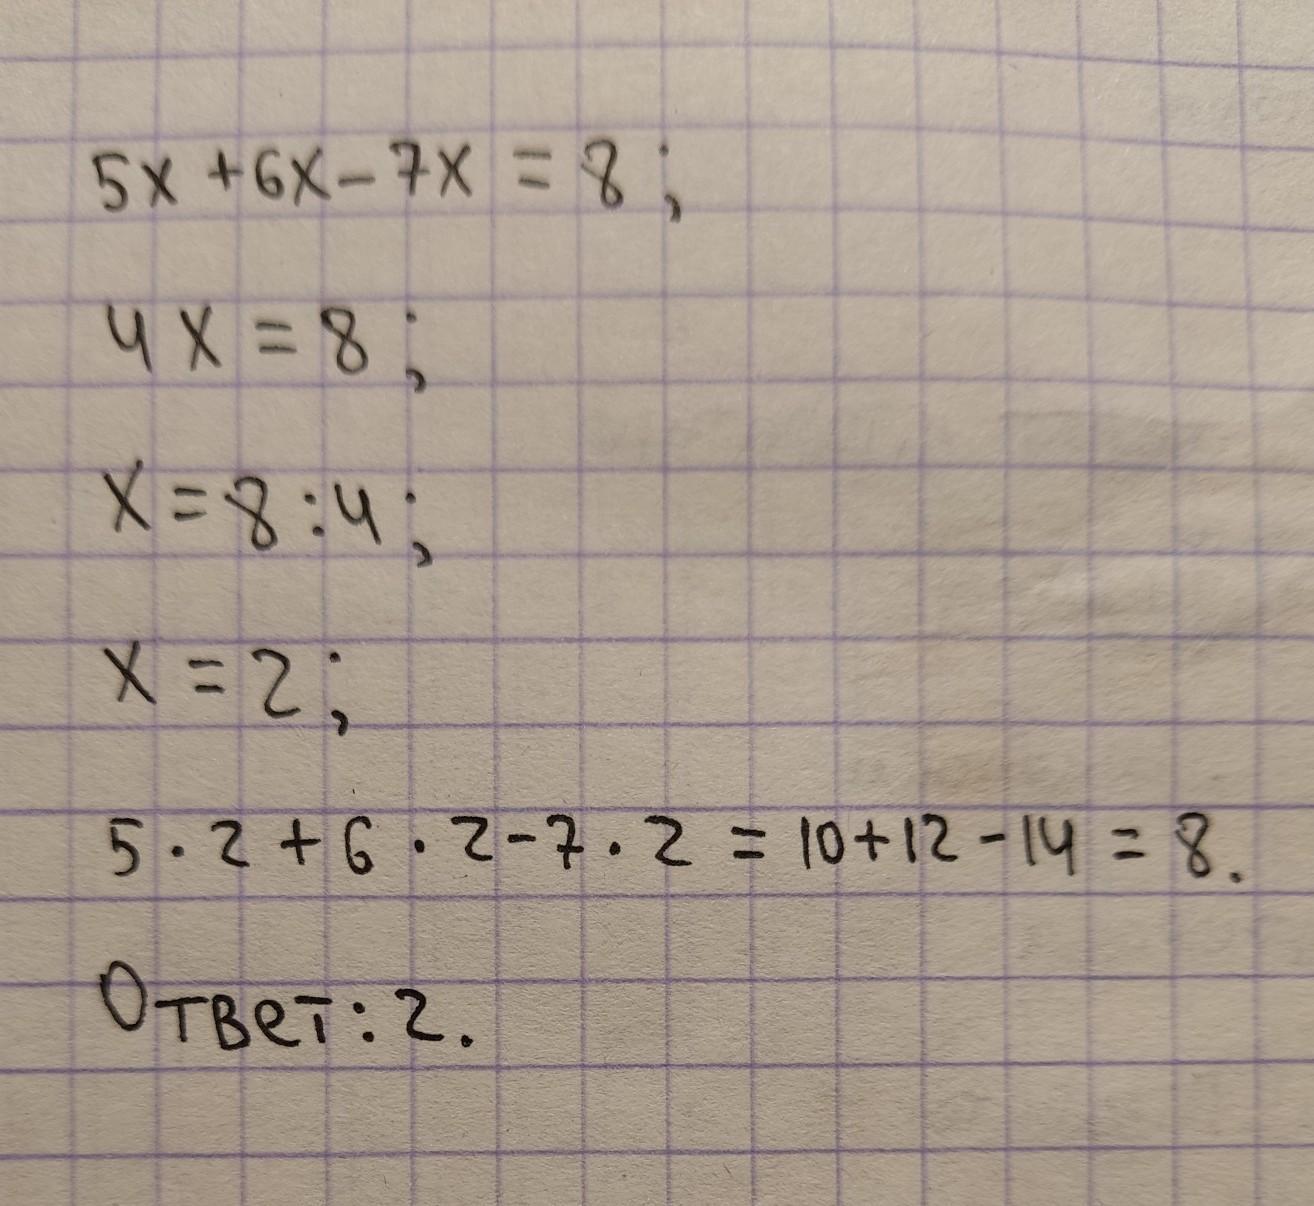 5x + 6x - 7x = 8;
4x = 8;
x = 8 : 4;
x = 2;
5 · 2 + 6 · 2 - 7 · 2 = 10 + 12 - 14 = 8.
Ответ: 2.